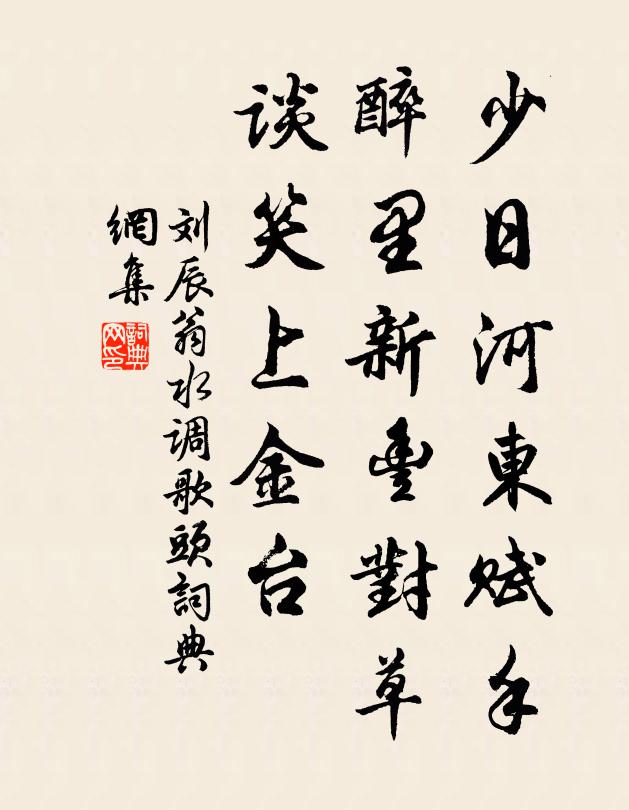 少日河東賦手
醉里新豐對草
谈笑上金台
刘辰翁水调歌頭詞典
網集
詞典
网印